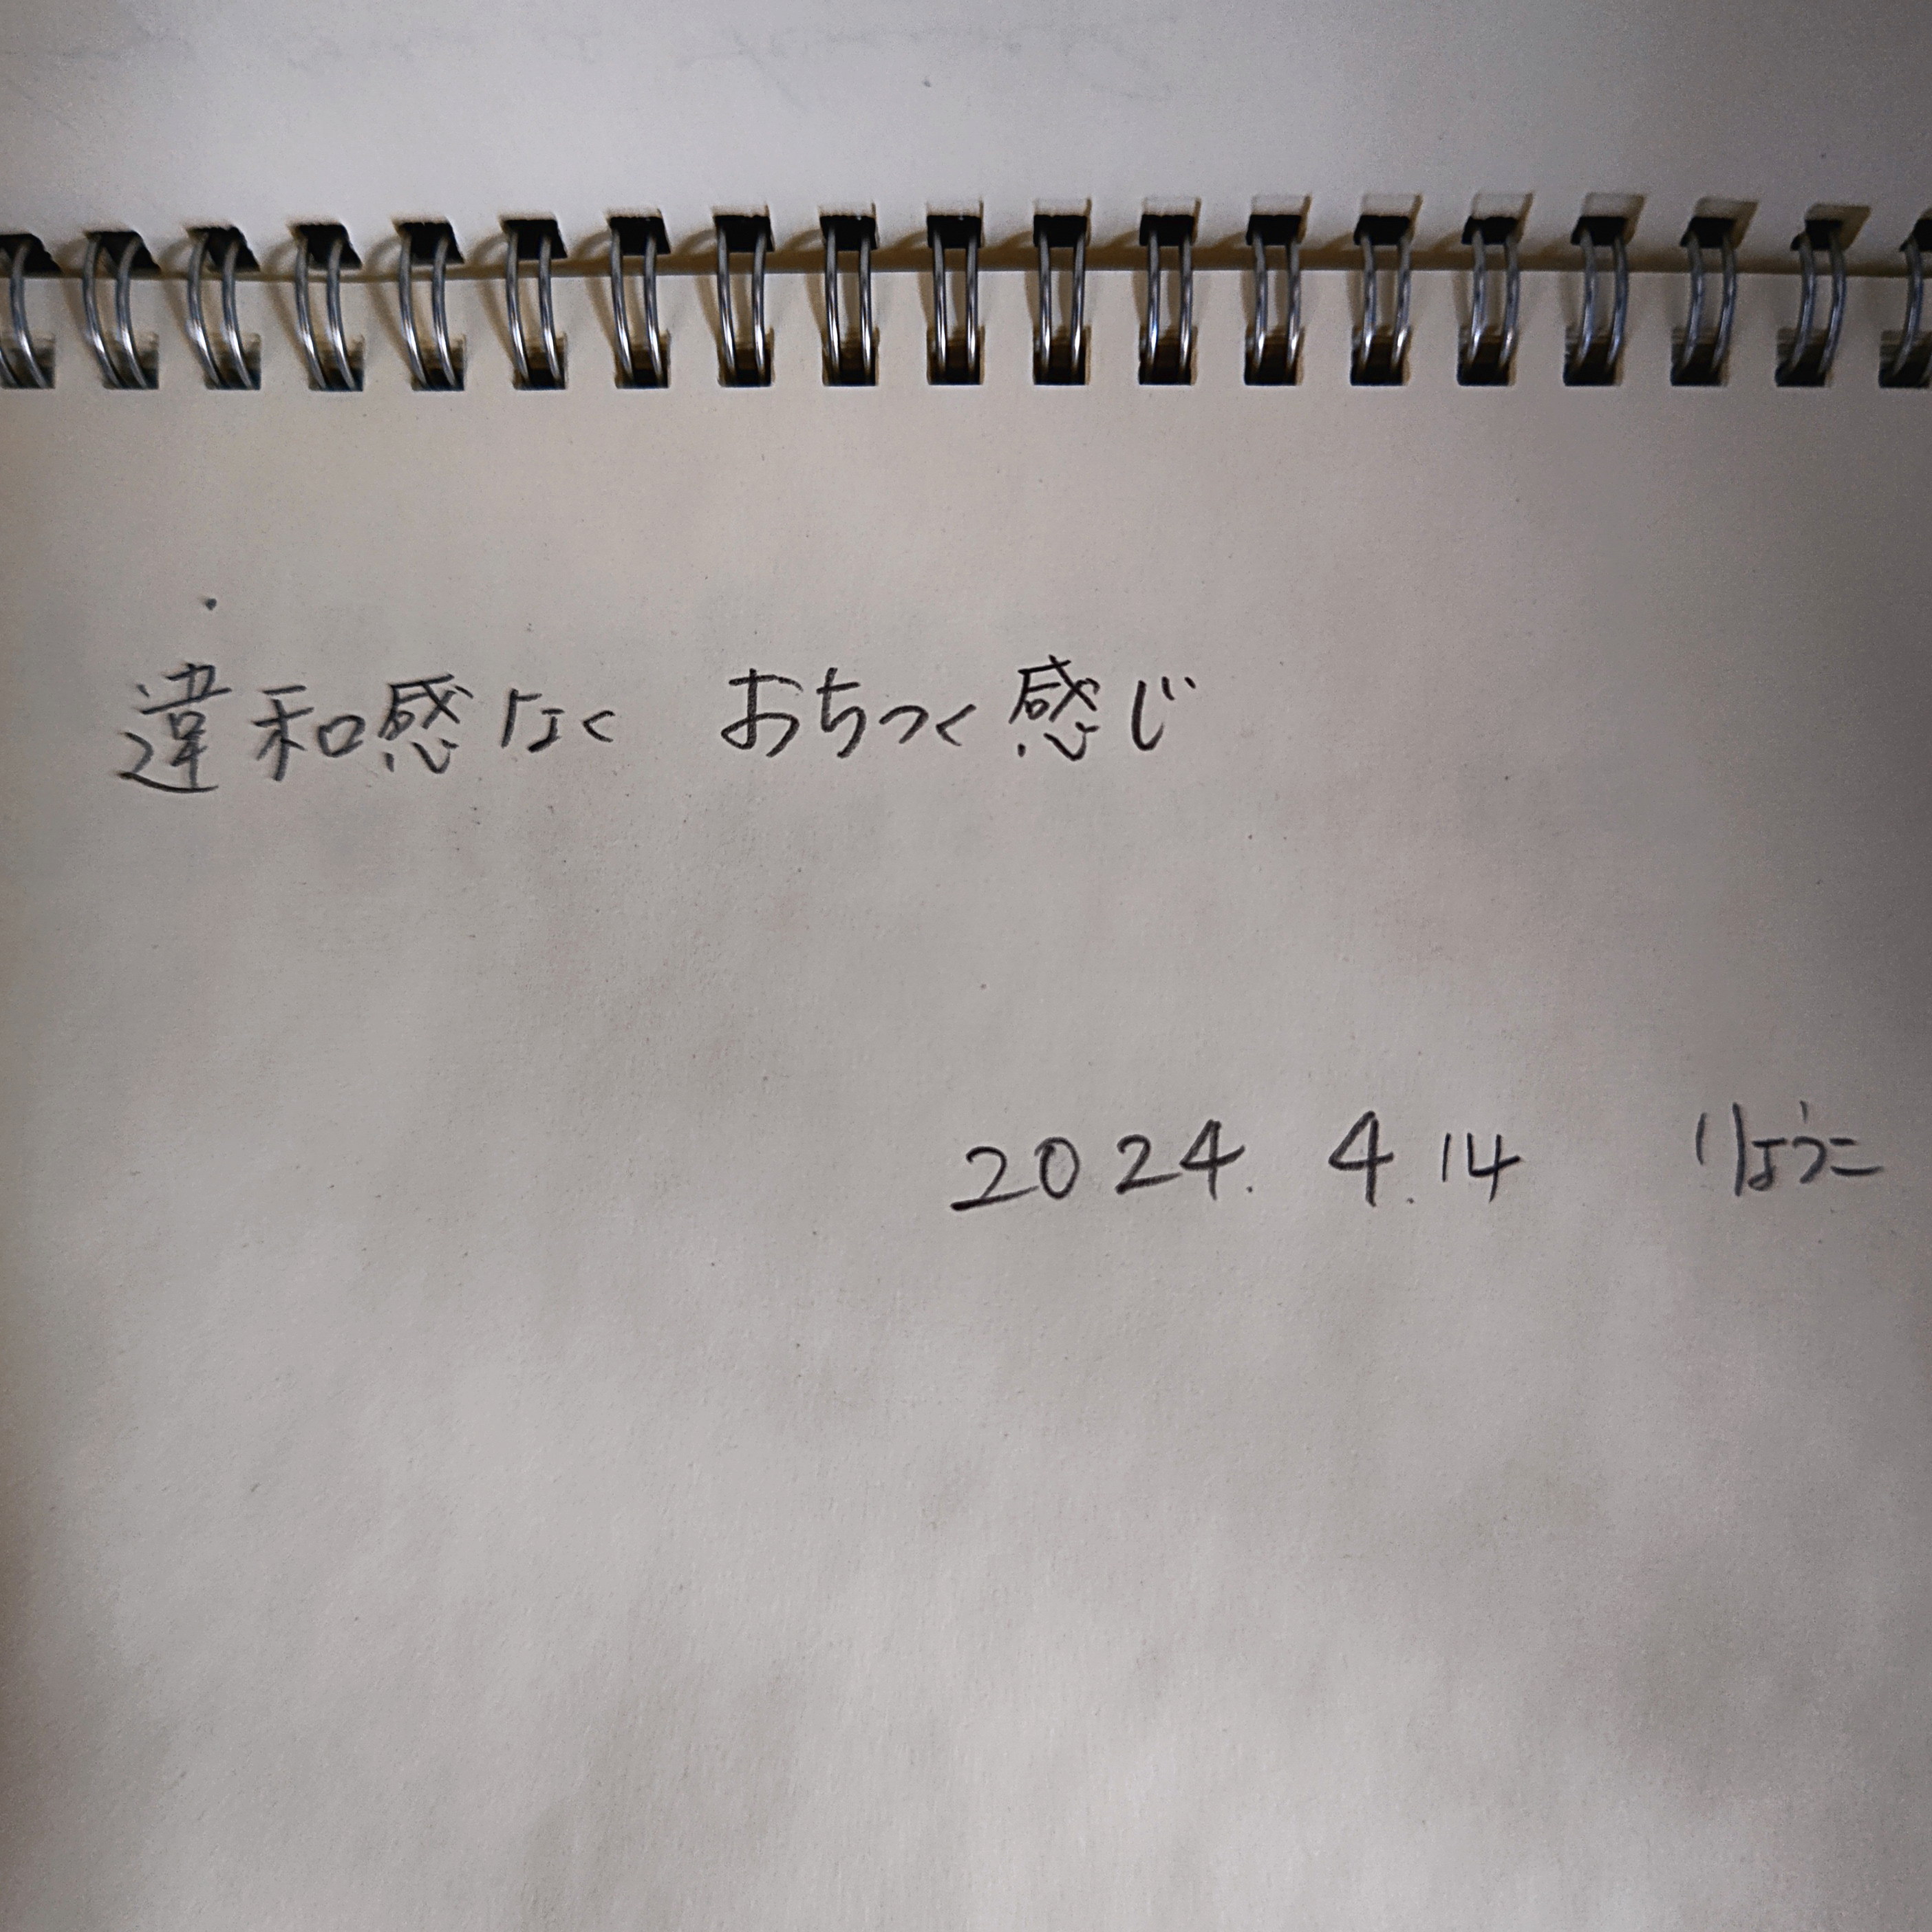 違和感なく おちつく感じ
2024. 4.14 りょうこ